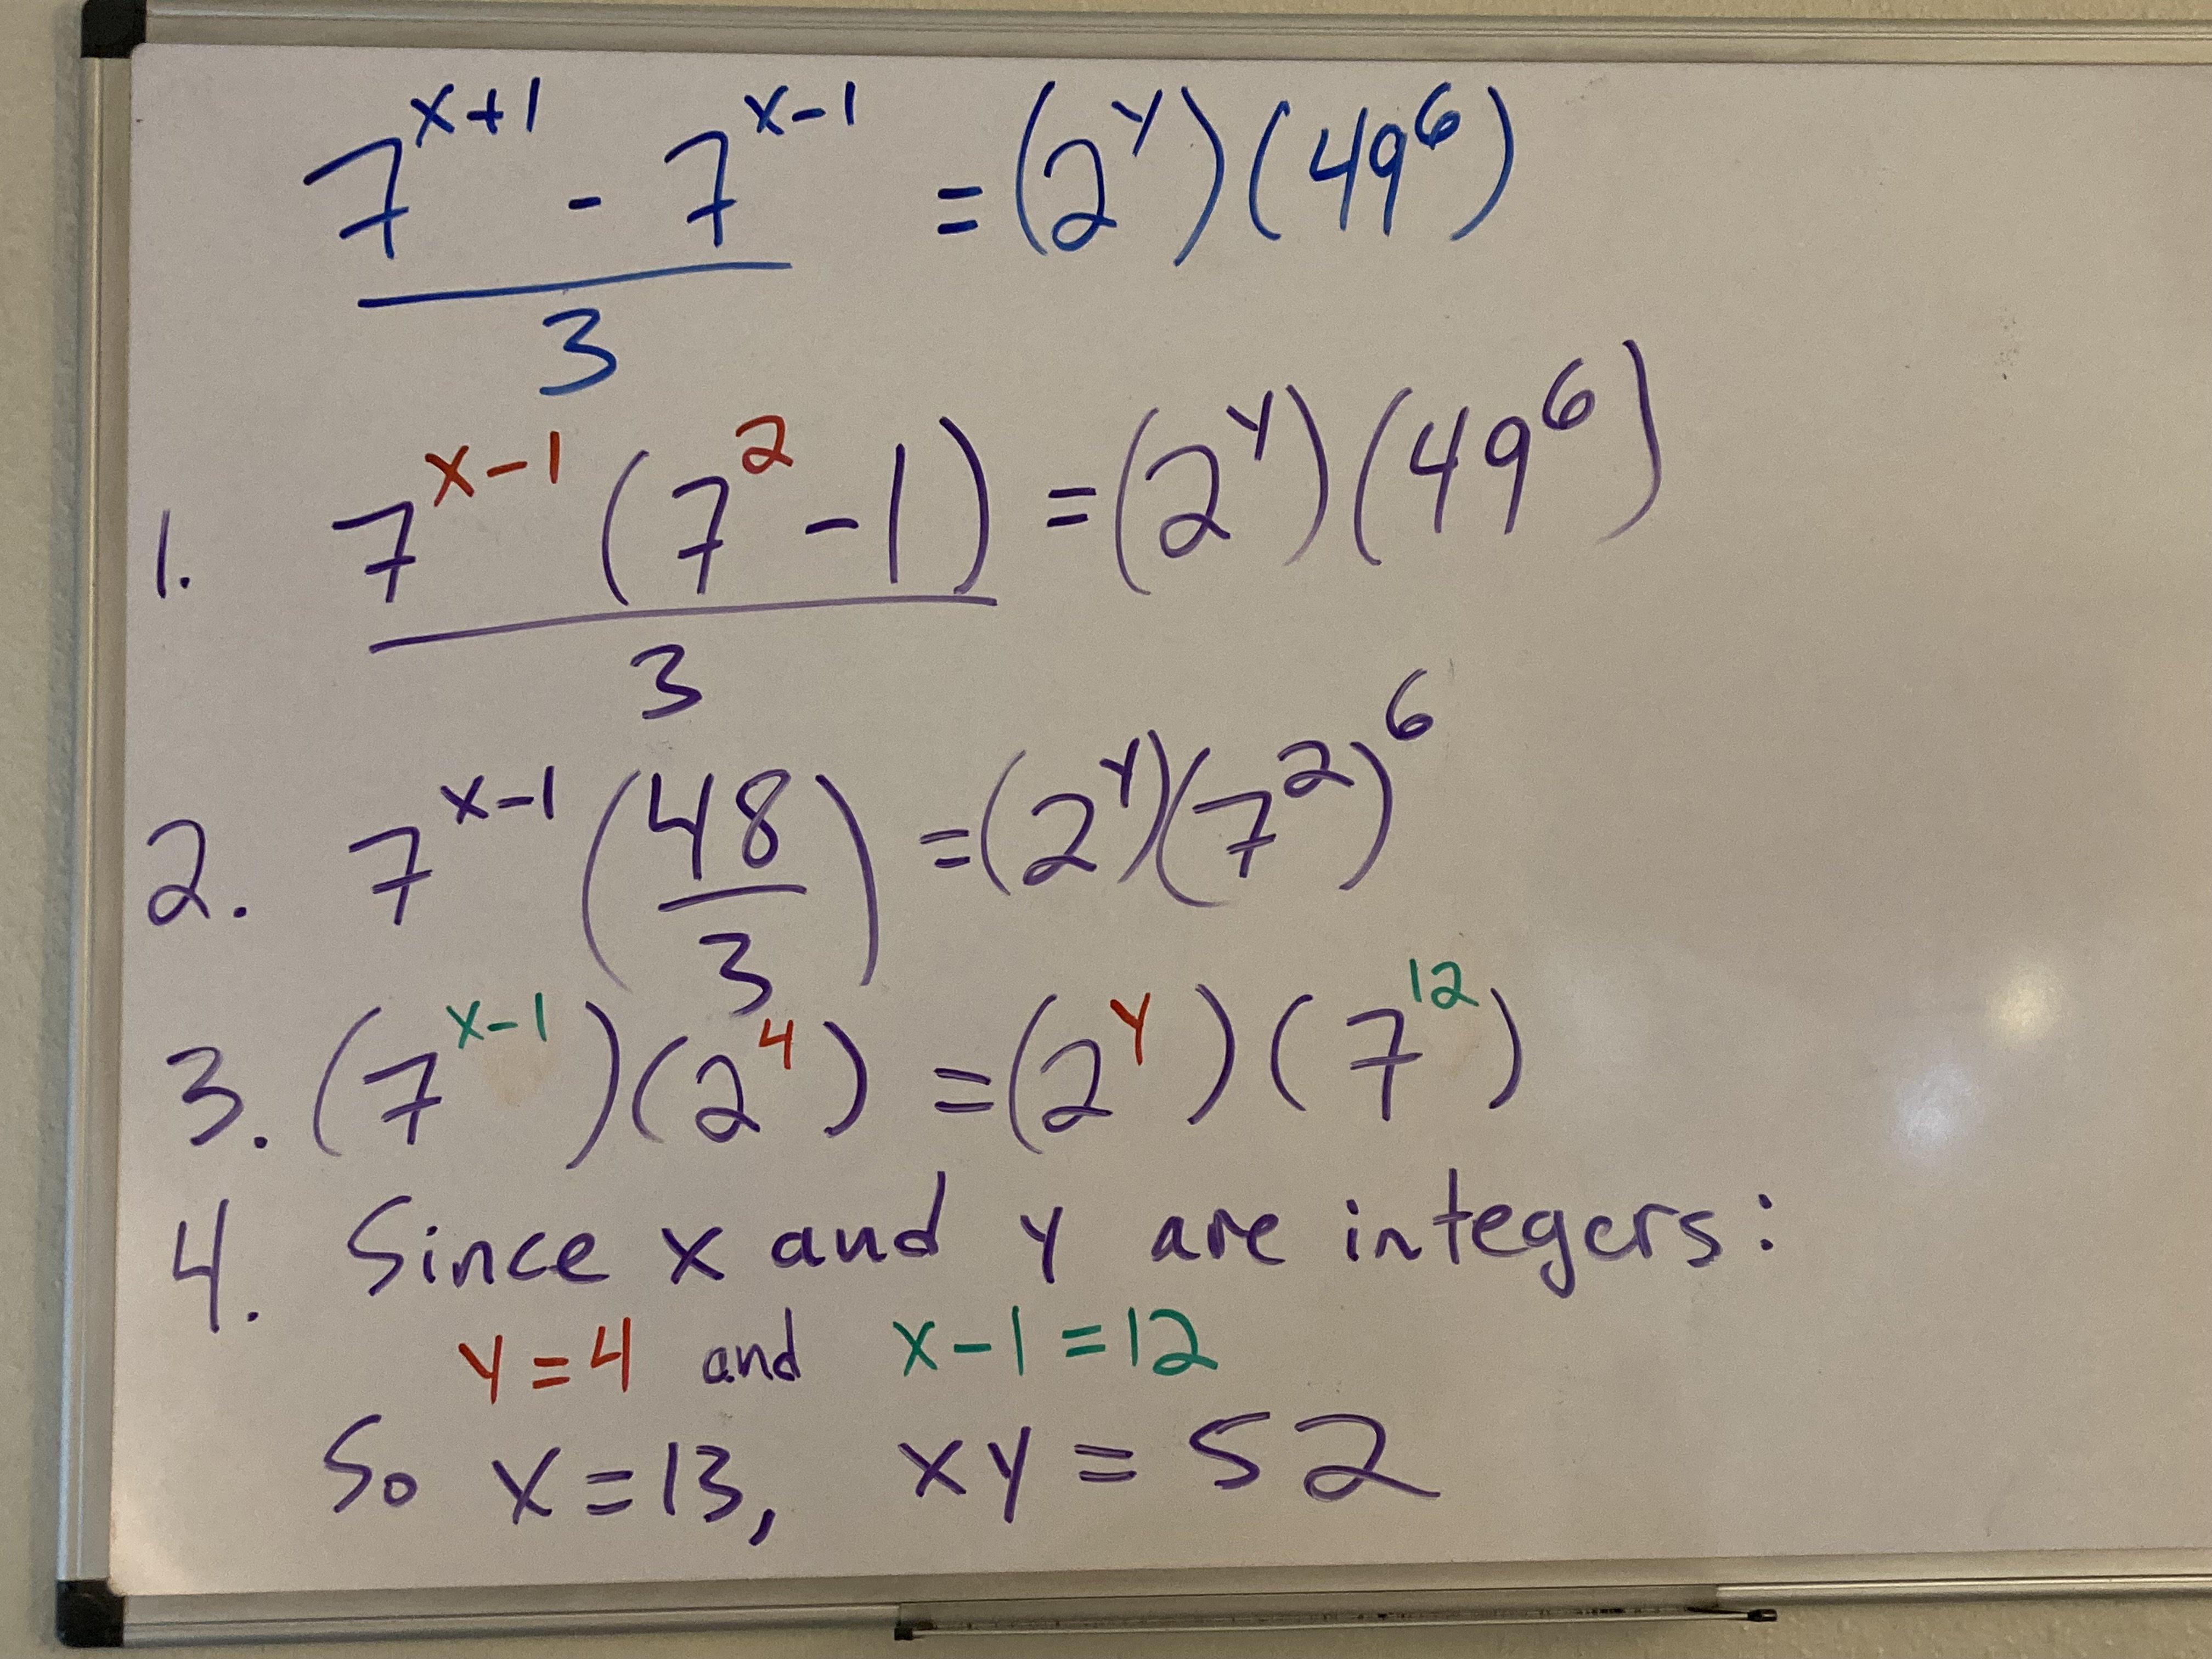 7^(x+1) - 7^(x-1) / 3 = (2^y)(49^6)
1. 7^(x-1) (7^2 - 1) / 3 = (2^y)(49^6)
2. 7^(x-1) (48/3) = (2^y)(7^2)^6
3. (7^(x-1))(2^4) = (2^y)(7^12)
4. Since x and y are integers:
y = 4 and x - 1 = 12
So x = 13, xy = 52